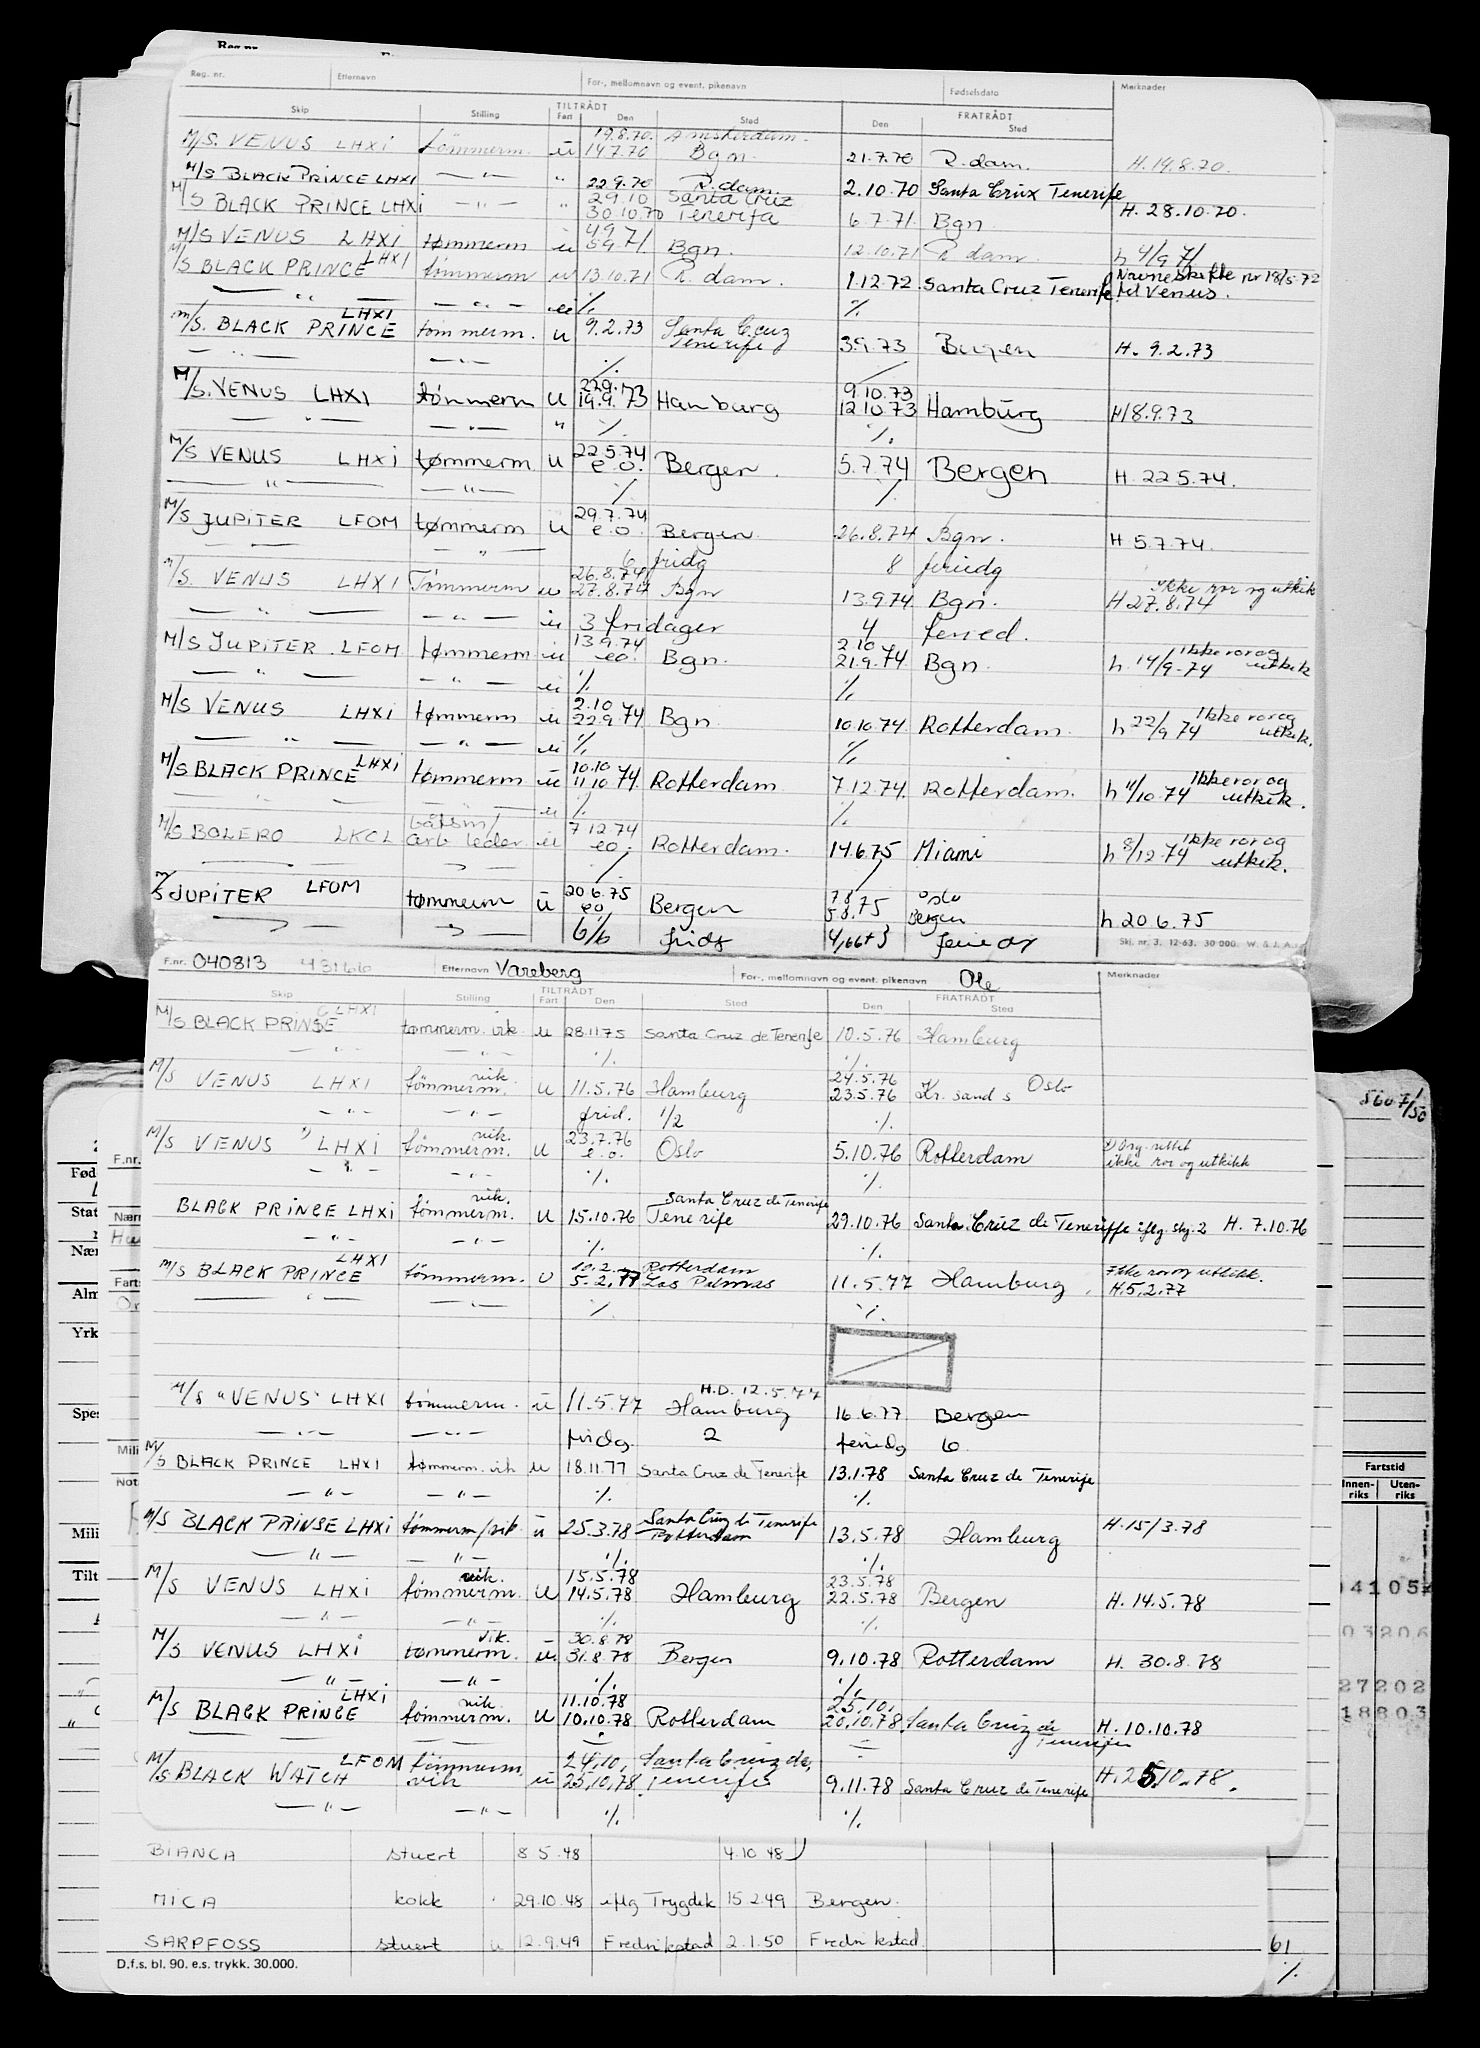 Reg. nr. Etternavn For-, mellomnavn og event. pikenavn Fødselsdato Merknader
TILTRÅDT FRATRÅDT
Skip Stilling Fart Den Sted Den Sted
19.8.70. Amsterdam.
M/S. VENUS LHXI tømmerm. u 14.7.70 Bgn. 21.7.70 R.dam. H. 19.8.70.
M/S BLACK PRINCE LHXI — " — " 22.9.70 R.dam. 2.10.70 Santa Crux Tenerife
29.10 Santa Cruz
M/S BLACK PRINCE LHXI — " — " 30.10.70 Tenerifa 6.7.71. Bgn H. 28.10.70.
4.9.71
M/S VENUS LHXI tømmerm u 5.9.71. Bgn. 12.10.71 R dam. h 4/9 71
M/S BLACK PRINCE LHXI tømmerm u 13.10.71 R. dam. 1.12.72. Santa Cruz Tenerife Navneskifte nr 18/5-72
til Venus.
— " — — " — u % %
M/S. BLACK PRINCE LHXI tømmerm. u 9.2.73 Santa Cruz
Tenerife 3.9.73 Bergen H. 9.2.73
— " — — " — % /
22.9.73 9.10.73
M/S. VENUS LHXI tømmerm u 19.9.73 Hamburg 12.10.73 Hamburg H18.9.73
— " — — " — " % %
22.5.74
M/S VENUS LHXI tømmerm u e.o. Bergen. 5.7.74 Bergen H. 22.5.74.
— " — — " — % %
29.7.74
M/S JUPITER LFOM tømmerm u e.o. Bergen. 26.8.74 Bgn. H 5.7.74.
— " — — " — 6 fridg 8 feriedg
26.8.74 Ikke ror og utkik
M/S. VENUS LHXI Tømmerm u 27.8.74 Bgn 13.9.74 Bgn. H 27.8.74
— " — — " — u 3 fridager 4 feried.
13.9.74 2.10 Ikke ror og
M/S JUPITER. LFOM tømmerm u eo. Bgn. 21.9.74 Bgn. h 14/9-74 utkik
— " — — " — u % %
2.10 Ikke ror og
M/S VENUS LHXI tømmerm u 22.9.74 Bgn 10.10.74 Rotterdam h 22/9 74 utkik.
— " — — " — u % %
10.10 Ikke ror og
M/S BLACK PRINCE LHXI tømmerm u 11.10.74 Rotterdam 7.12.74. Rotterdam. h 11/10.74 utkik.
— " — — " — u % %
båtsm/ 7.12.74 Ikke ror og
M/S BOLERO LKCL arb leder u eo. Rotterdam. 14.6.75 Miami h 8/12-74 utkik.
20.6.75 7.8 Oslo
M/S JUPITER LFOM tømmerm u eo Bergen 5.8.75 Bergen h 20 6.75
6/6 fridg 4,66+3 feriedg
Skj. nr. 3. 12-63. 30 000. W. & J.
F.nr. 040813 43166 Etternavn Vareberg For-, mellomnavn og event. pikenavn Ole Merknader
TILTRÅDT FRATRÅDT
Skip Stilling Fart Den Sted Den Sted
M/S BLACK PRINSE LHXI tømmerm. vik. u 28.11.75 Santa Cruz de Tenerife 10.5.76 Hamburg
— " — — " — % %
vik. 24.5.76
M/S VENUS LHXI tømmerm. u 11.5.76 Hamburg 23.5.76 Kr. sand s Oslo
— " — — " — frid. 1/2 %
vik. 23.7.76
M/S VENUS LHXI tømmerm. u e.o. Oslo 5.10.76 Rotterdam ikke ror og utkikk
— " — — " — % %
vik. Santa Cruz de Tenerife
BLACK PRINCE LHXI tømmerm. u 15.10.76 Tenerife 29.10.76 Santa Cruz de Teneriffe iflg. skj. 2 H. 7.10.76
— " — — " — % %
10.2. Rotterdam Ikke ror og utkikk.
M/S BLACK PRINCE LHXI tømmerm. u 5.2.77 Las Palmas 11.5.77 Hamburg H.5.2.77
— " — — " — % %
H.D. 12.5.77
M/S "VENUS" LHXI tømmerm. u 11.5.77 Hamburg 16.6.77 Bergen
— " — — " — fridg. 2 feriedg 6
M/S BLACK PRINCE LHXI tømmerm. vik u 18.11.77 Santa Cruz de Tenerife 13.1.78 Santa Cruz de Tenerife
— " — — " — % %
Santa Cruz de Tenerife
M/S BLACK PRINSE LHXI tømmerm/vik. u 25.3.78 Rotterdam 13.5.78 Hamburg H.15/3.78
— " — — " — % %
vik. 15.5.78 23.5.78
M/S VENUS LHXI tømmerm. u 14.5.78 Hamburg 22.5.78 Bergen H. 14.5.78
— " — — " — % %
vik. 30.8.78
M/S VENUS LHXI tømmerm. u. 31.8.78 Bergen 9.10.78 Rotterdam H. 30.8.78
— " — — " — % %
vik. 11.10.78 25.10.
M/S BLACK PRINCE LHXI tømmerm. u 10.10.78 Rotterdam 20.10.78. Santa Cruz de
Tenerife H. 10.10.78
24.10. Santa Cruz de
M/S BLACK WATCH LFOM tømmerm. vik u 25.10.78. Tenerife 9.11.78 Santa Cruz de Tenerife H. 25.10.78.
— " — — " — % %
BIANCA stuert 8.5.48 4.10.48
MICA kokk 29.10.48 iflg Trygdek 15.2.49 Bergen.
SARPFOSS stuert u 12.9.49 Fredrikstad 2.1.50 Fredrikstad.
D.f.s. bl. 90. e.s. trykk. 30.000.
61
%
Reg. nr.
Fød
Stat
Nær
Alm
Yrk
Spes
Mili
Tilt
F.nr.
Nærm
Farts
Mili
Not
5607/50
Fartstid
Innen-
riks Uten-
riks
04105
03206
27202
18803